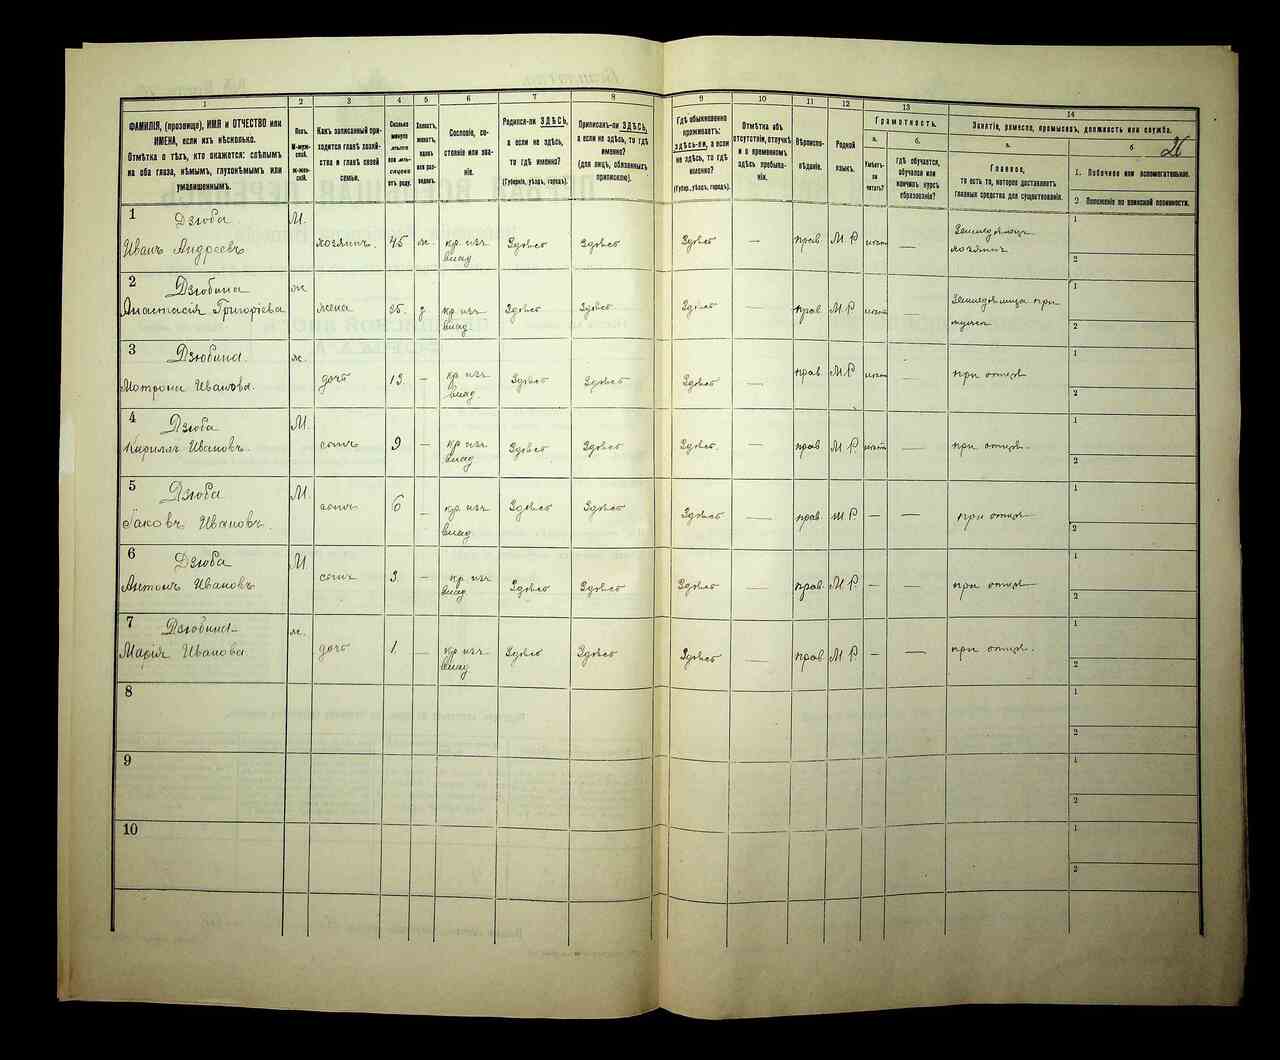 1 2 3 4 5 6 7 8 9 10 11 12 13 14
ФАМИЛІЯ, (прозвище), ИМЯ и ОТЧЕСТВО или
ИМЕНА, если ихъ нѣсколько.
Отмѣтка о тѣхъ, кто окажется: слѣпымъ
на оба глаза, нѣмымъ, глухонѣмымъ или
умалишеннымъ.
Полъ.
М-муж-
ской.
ж-жен-
скій.
Какъ записанный при-
ходится главѣ хозяй-
ства и главѣ своей
семьи.
Сколько
минуло
лѣтъ
или мѣ-
сяцевъ
отъ роду.
Холостъ,
женатъ,
вдовъ
или раз-
веденъ.
Сословіе, со-
стояніе или зва-
ніе.
Родился-ли ЗДѢСЬ,
а если не здѣсь,
то гдѣ именно?
(Губернія, уѣздъ, городъ).
Приписанъ-ли ЗДѢСЬ,
а если не здѣсь, то гдѣ
именно?
(для лицъ, обязанныхъ
припискою).
Гдѣ обыкновенно
проживаетъ:
ЗДѢСЬ-ли, а если
не здѣсь, то гдѣ
именно?
(Губер., уѣздъ, городъ).
Отмѣтка объ
отсутствіи, отлучкѣ
и о временномъ
здѣсь пребыва-
ніи.
Вѣроиспо-
вѣданіе.
Родной
языкъ.
Грамотность.
а.
Умѣетъ-
ли
читать?
б.
гдѣ обучается,
обучался или
кончилъ курсъ
образованія?
Занятіе, ремесло, промыселъ, должность или служба.
а.
Главное,
то есть то, которое доставляетъ
главныя средства для существованія.
б.
26
1. Побочное или вспомогательное.
2 Положеніе по воинской повинности.
1 Дзюба М.
Иванъ Андреевъ хозяинъ. 45 ж. кр. изъ влад Здѣсь Здѣсь Здѣсь — прав М. Р. —
хозяинъ
1
2
2 Дзюбина ж
Анастасія Григоріева жена 35. кр. изъ влад Здѣсь Здѣсь Здѣсь — прав М. Р. при
1
2
3 Дзюбина ж.
Ивановa. дочь 13. — кр изъ влад. Здѣсь Здѣсь Здѣсь — прав М. Р. — при отцѣ
1
2
4 Дзюба М.
Кирилъ Ивановъ. сынъ 9 — кр изъ влад Здѣсь Здѣсь Здѣсь. — прав М. Р. — при отцѣ.
1
2
5 Дзюба М.
Яковъ Ивановъ. сынъ 6 — кр. изъ влад. Здѣсь Здѣсь Здѣсь — прав. М. Р. — — при отцѣ
1
2
6 Дзюба М
Антонъ Ивановъ сынъ 3. — кр. изъ влад Здѣсь Здѣсь Здѣсь — прав. М. Р. — — при отцѣ
1
2
7 Дзюбина ж.
Марія Иванова. дочь 1. — кр изъ влад Здѣсь Здѣсь Здѣсь — прав М. Р. — — при отцѣ.
1
2
8
1
2
9
1
2
10
1
2